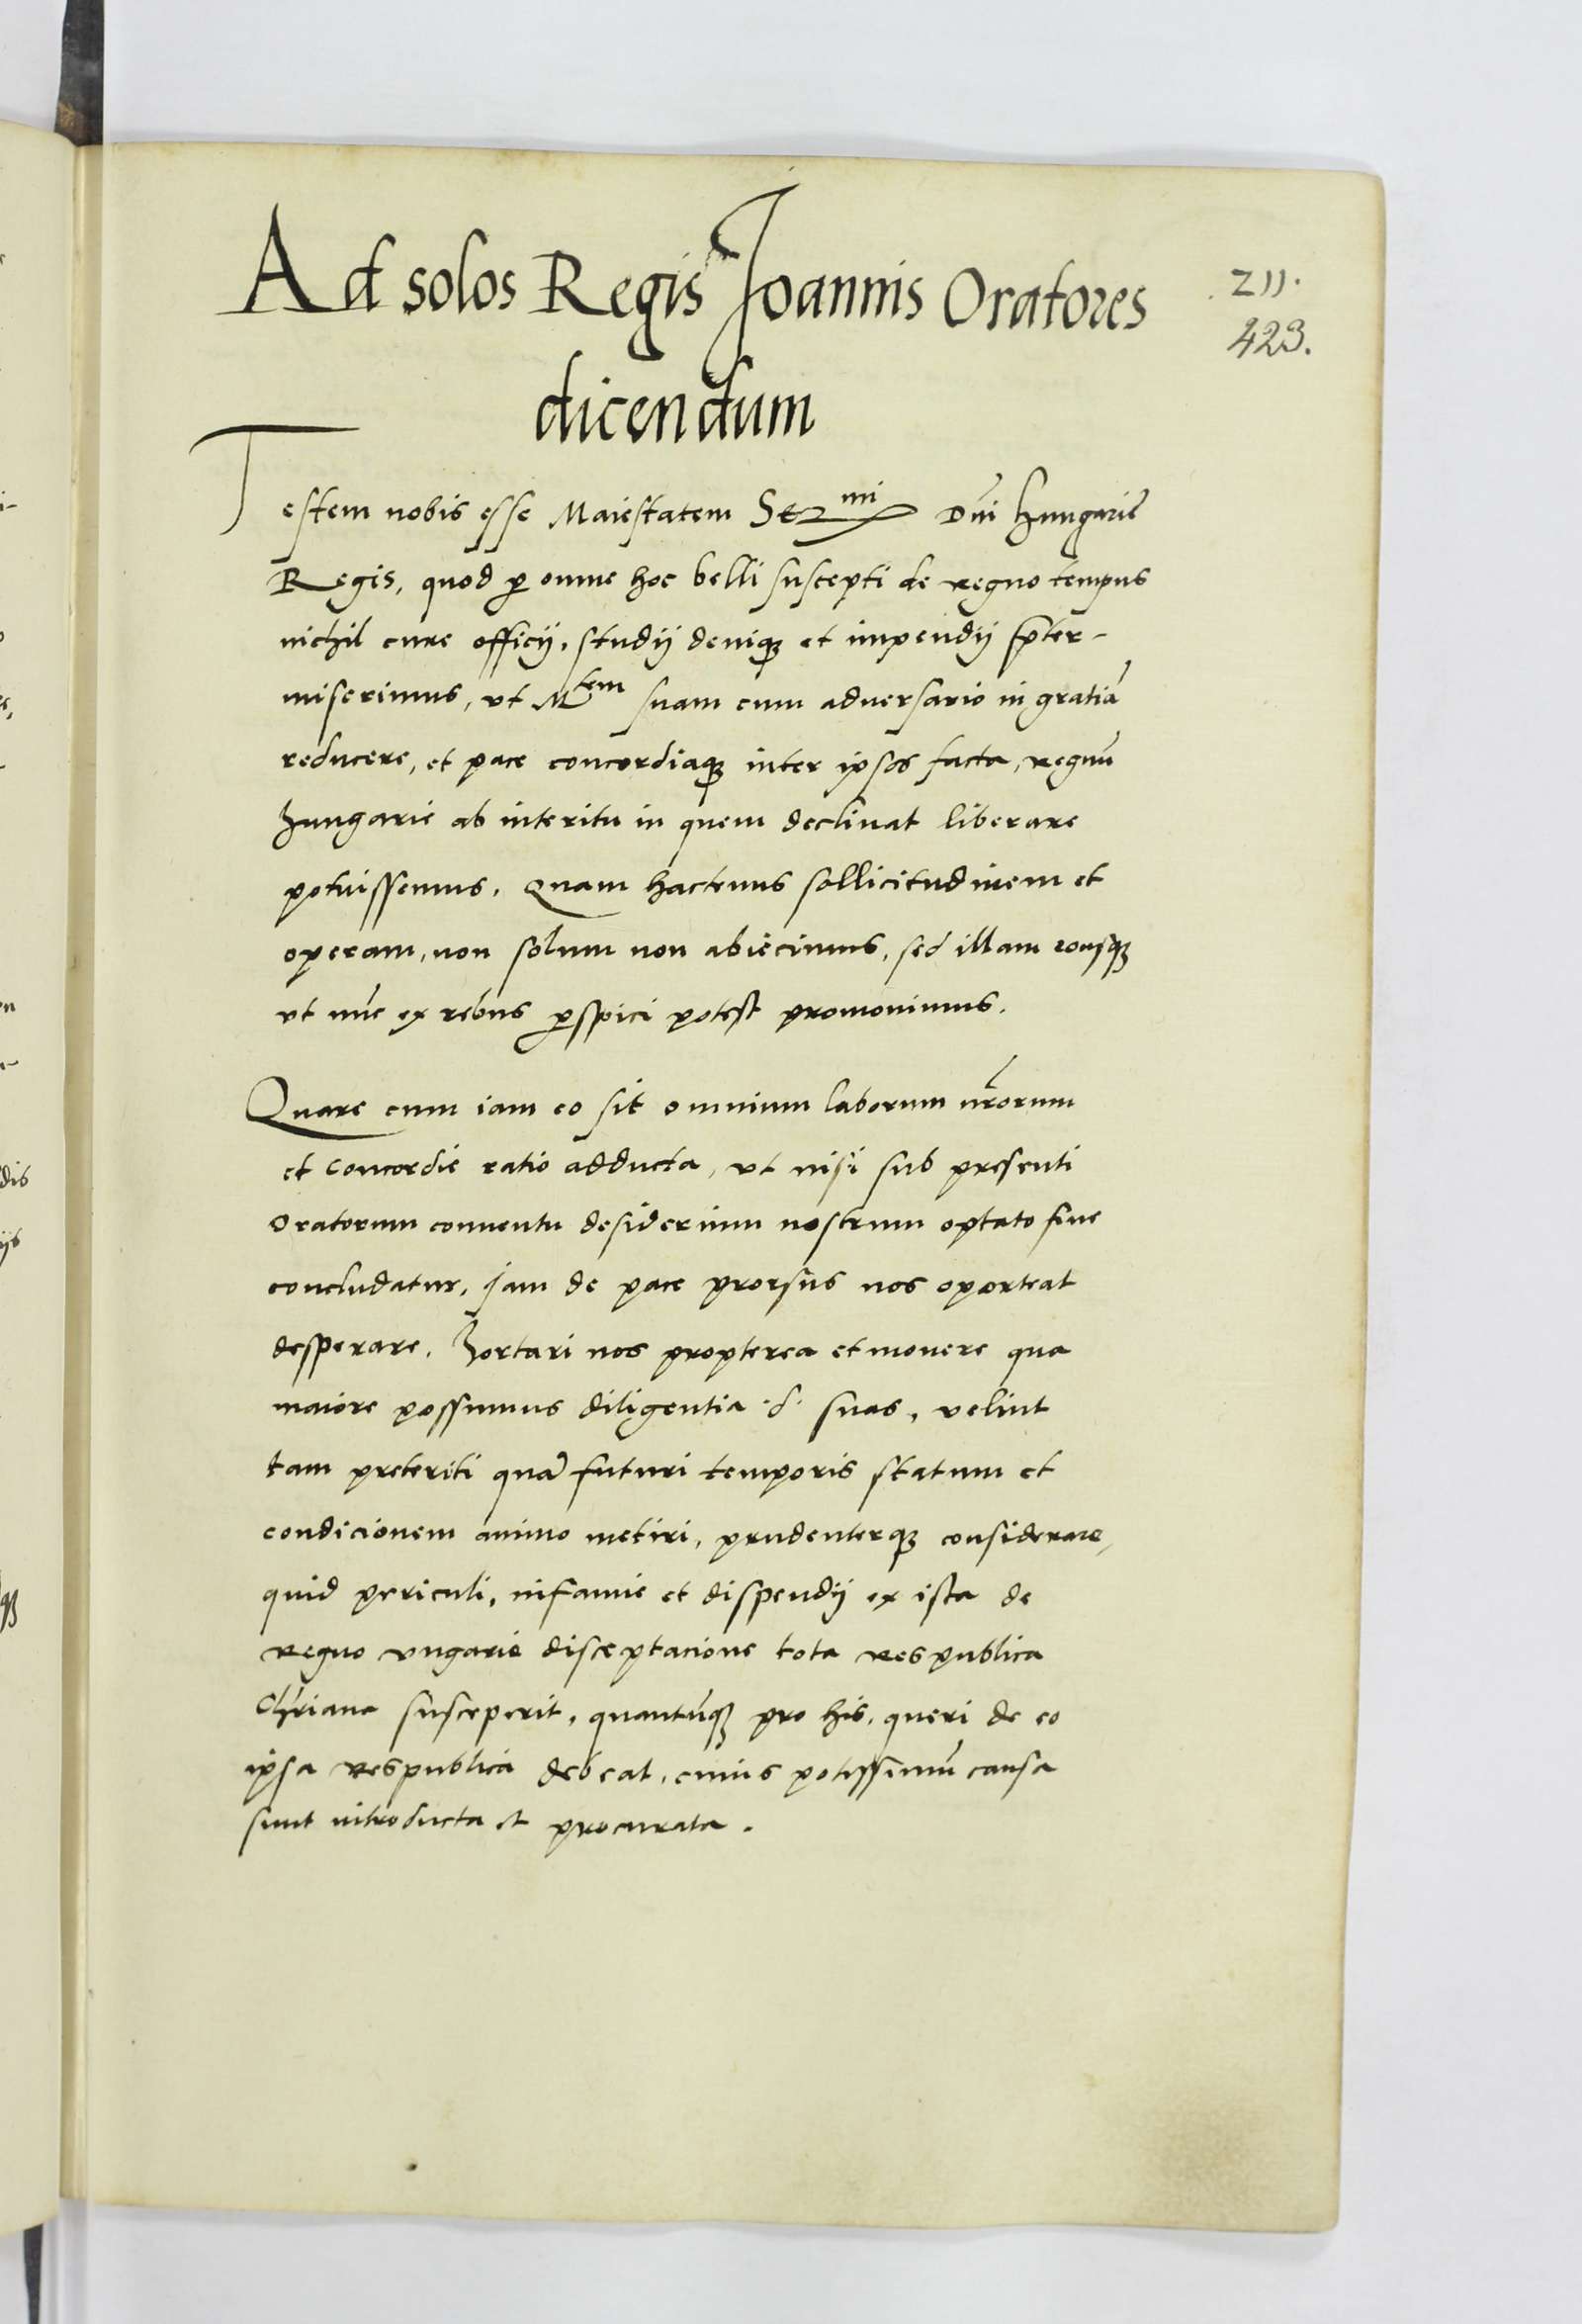 Ad solos Regis Joannis Oratores
211.
423.
dicendum
Testem nobis esse Maiestatem Ser^mi Dñi Hungarie
Regis, quod ꝑ omne hoc belli suscepti de regno tempus
nichil cure officij, studij deniqꝫ et impendij p̃ter-
miserimus, vt M^tem suam cum aduersario in gratiã
reducere, et pace concordiaqꝫ inter ipsos facta, regnũ
Hungarie ab interitu in quem declinat liberare
potuissemus. Quam hactenus sollicitudinem et
operam, non solum non abiecimus, sed illam eousqꝫ
vt nũc ex rebus ꝑspici potest promouimus.
Quare cum iam eo sit omnium laborum nr̃orum
et concordie ratio adducta, vt nisi sub presenti
Oratorum conuentu desiderium nostrum optato fine
concludatur, Jam de pace prorsus nos oporteat
desperare. Hortari nos propterea et monere qua
maiore possumus diligentia .d. suas, velint
tam preteriti quã futuri temporis statum et
condicionem animo metiri, prudenterqꝫ considerare,
quid periculi, infamie et dispendij ex ista de
regno vngarie disceptacione tota respublica
Chr̃iana susceperit, quantũqꝫ pro his, queri de eo
ipsa respublica debeat, cuius potissimũ causa
sunt introducta et procurata.